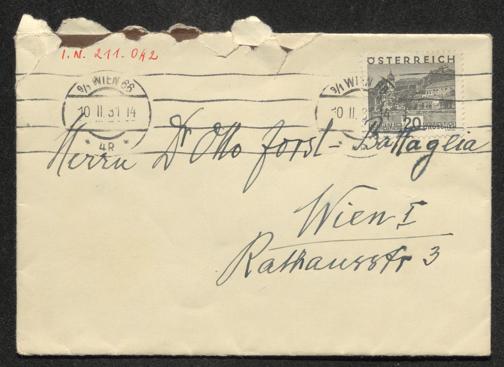 I.N. 211.042
ÖSTERREICH
9/1 WIEN 66
10 II 31 14
* 4R *
9/1 WIEN
10 II
14
20
Herrn Dr Otto Forst-Battaglia
Wien I
Rathausstr 3